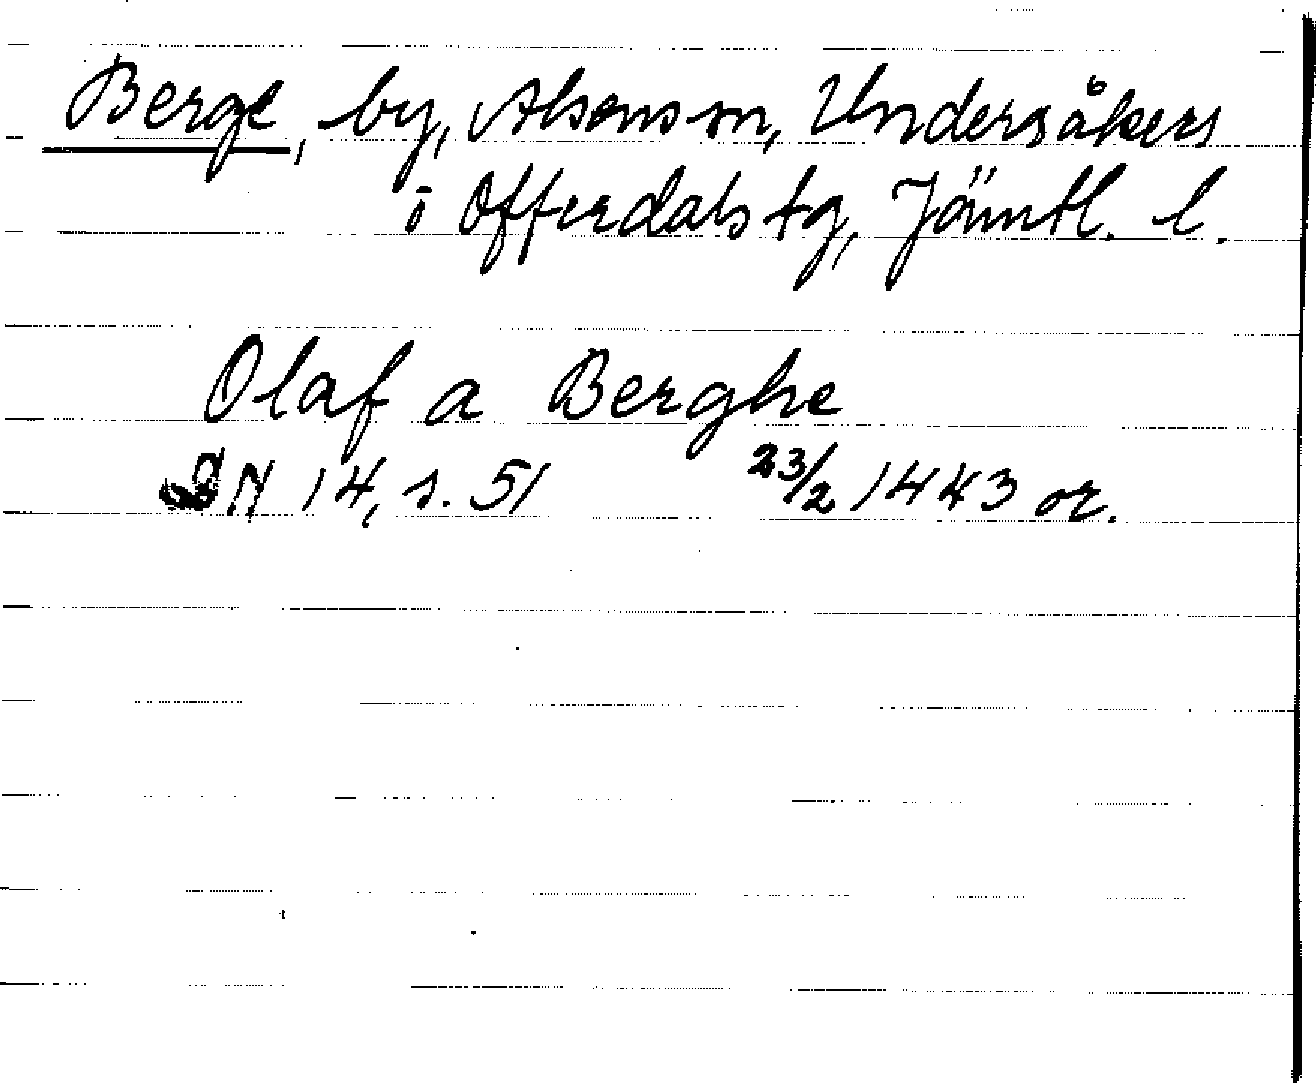 Berge, by, Alsens sn, Undersåkers
o Offerdals tg, Jämtl. l.
Olaf a Berghe
DN 14, s. 51 23/2 1443 or.